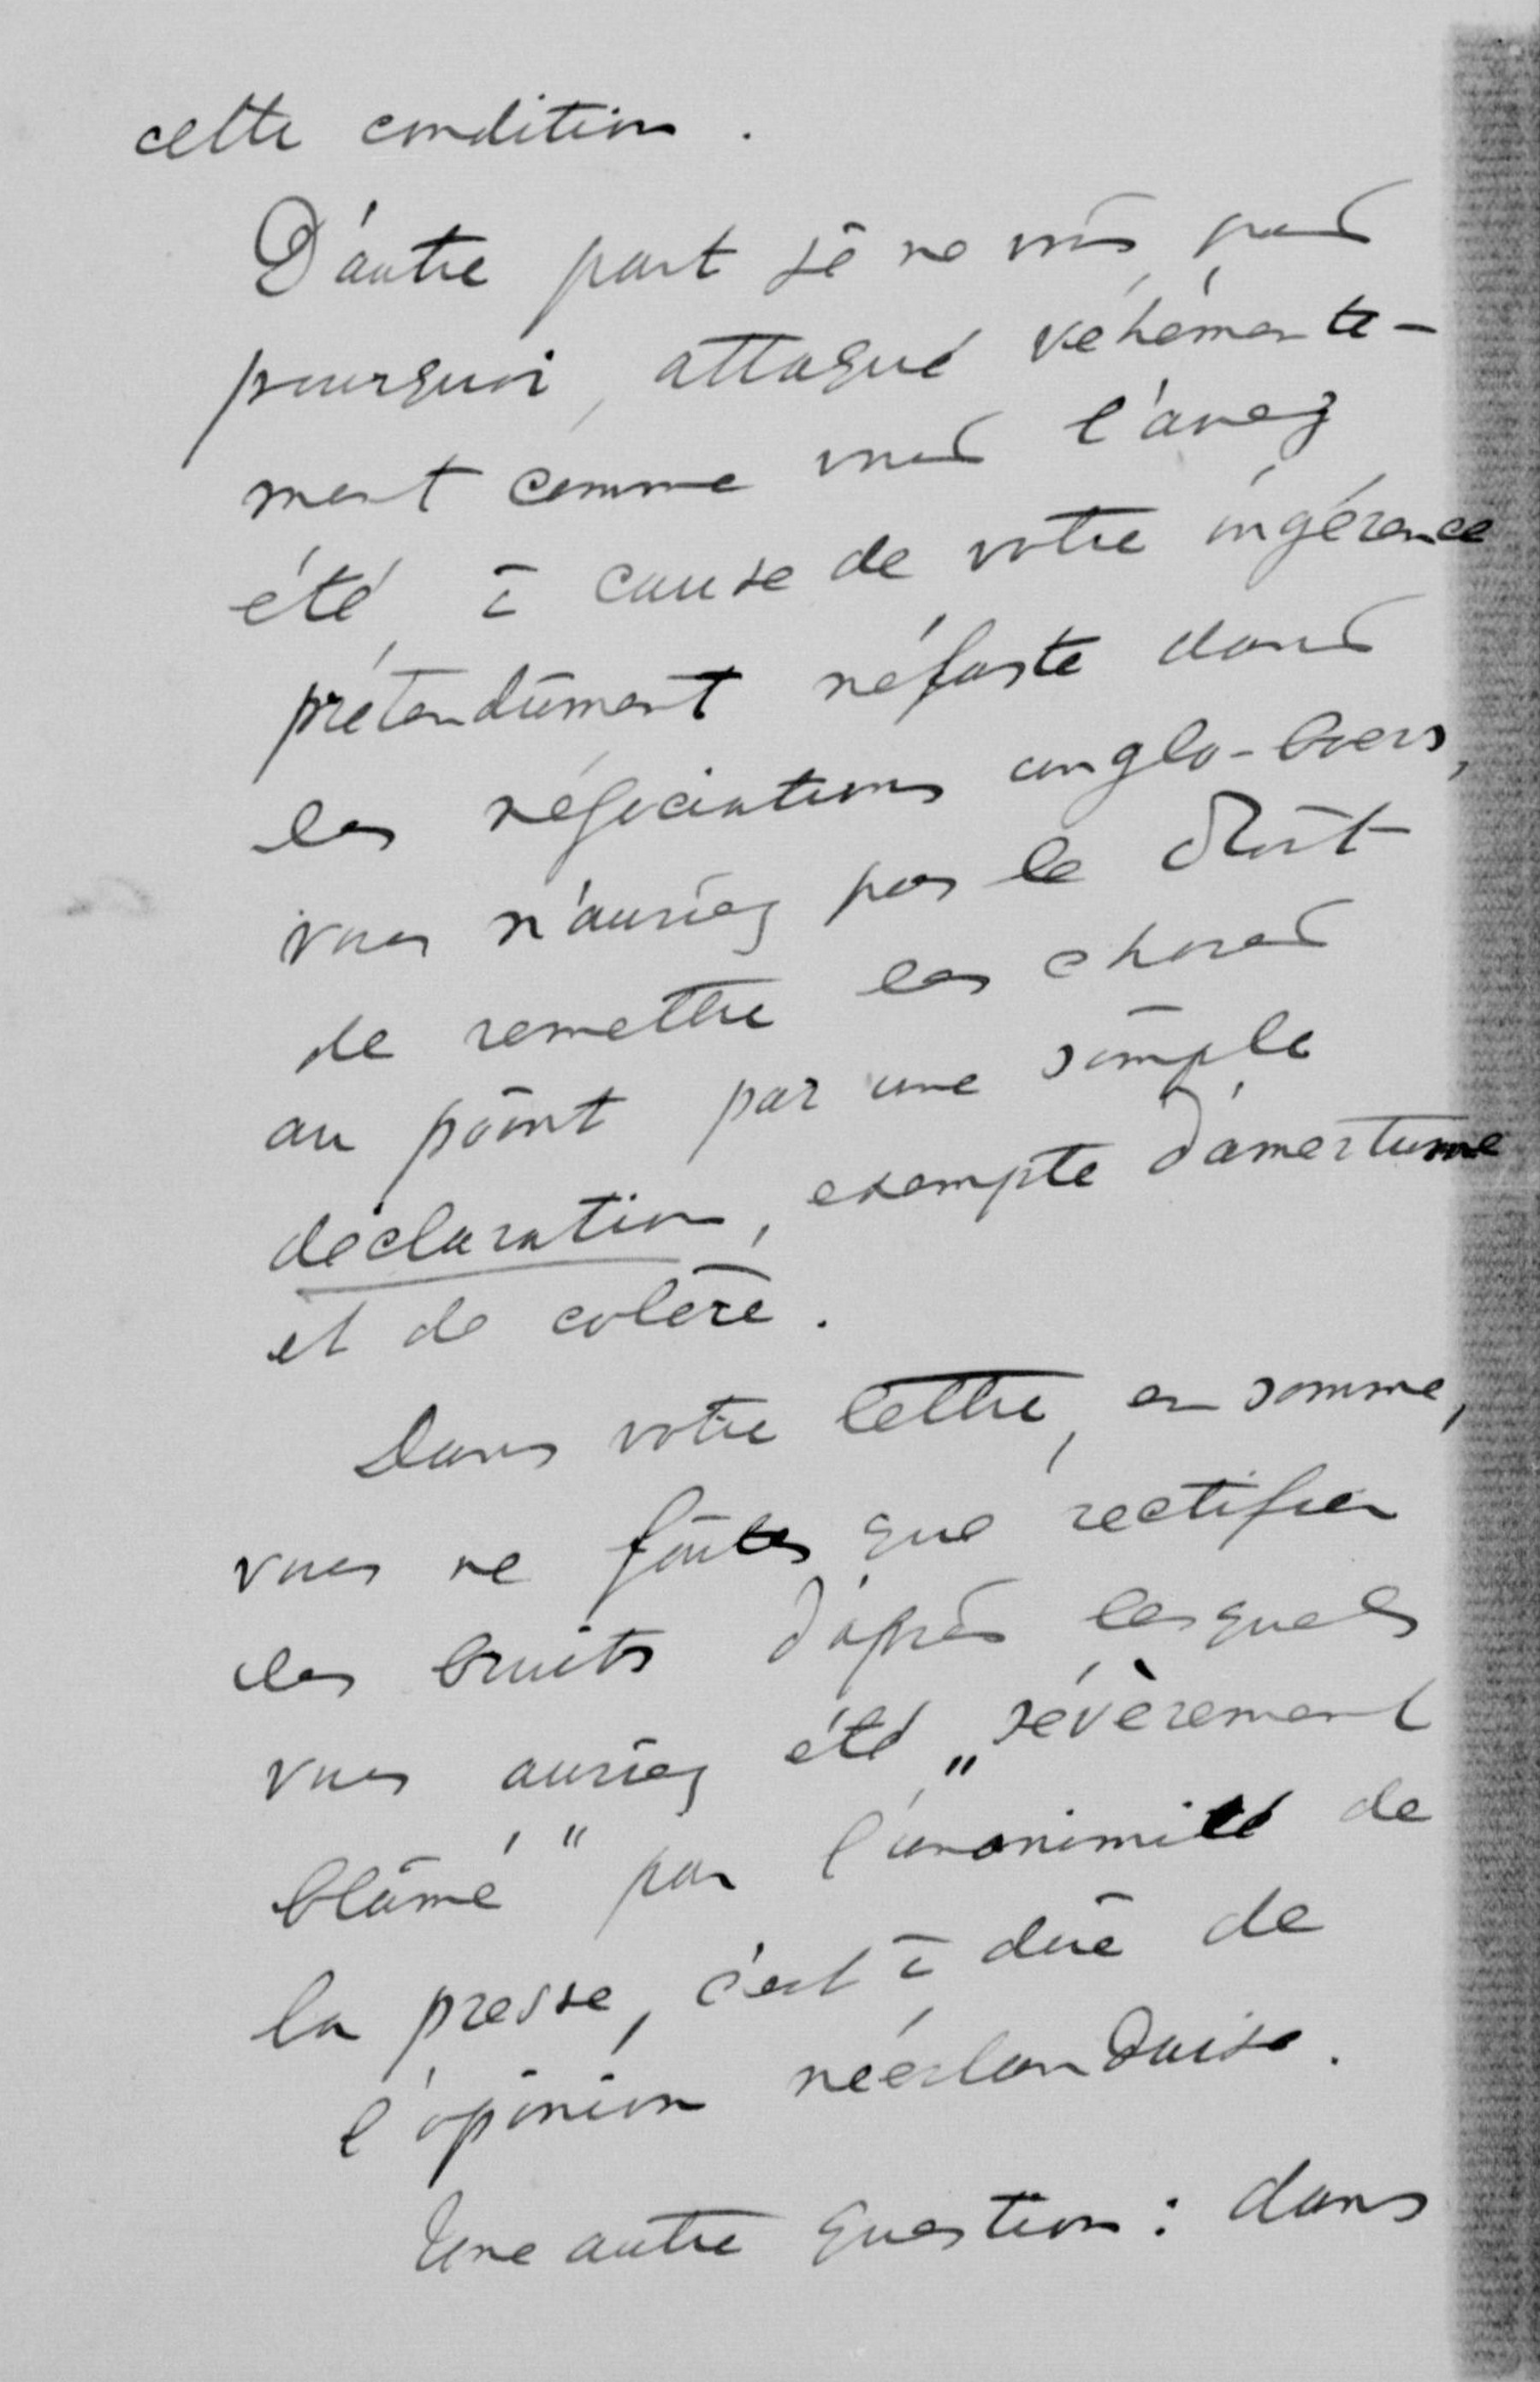 cette condition.
D'autre part je ne vois pas
pourquoi, attaqué véhémente-
ment comme vous l'avez
été, à cause de votre ingérence
prétendûment néfaste dans
les négociations anglo-boers,
vous n'auriez pas le droit
de remettre les choses
au point par une simple
déclaration, exempte d'amertume
et de colère.
Dans votre lettre, en somme,
vous ne faites que rectifier
les bruits d'après lesquels
vous auriez été „sévèrement
blâmé" par l'unanimité de
la presse, c'est à dire de
l'opinion néerlandaise.
Une autre question : dans